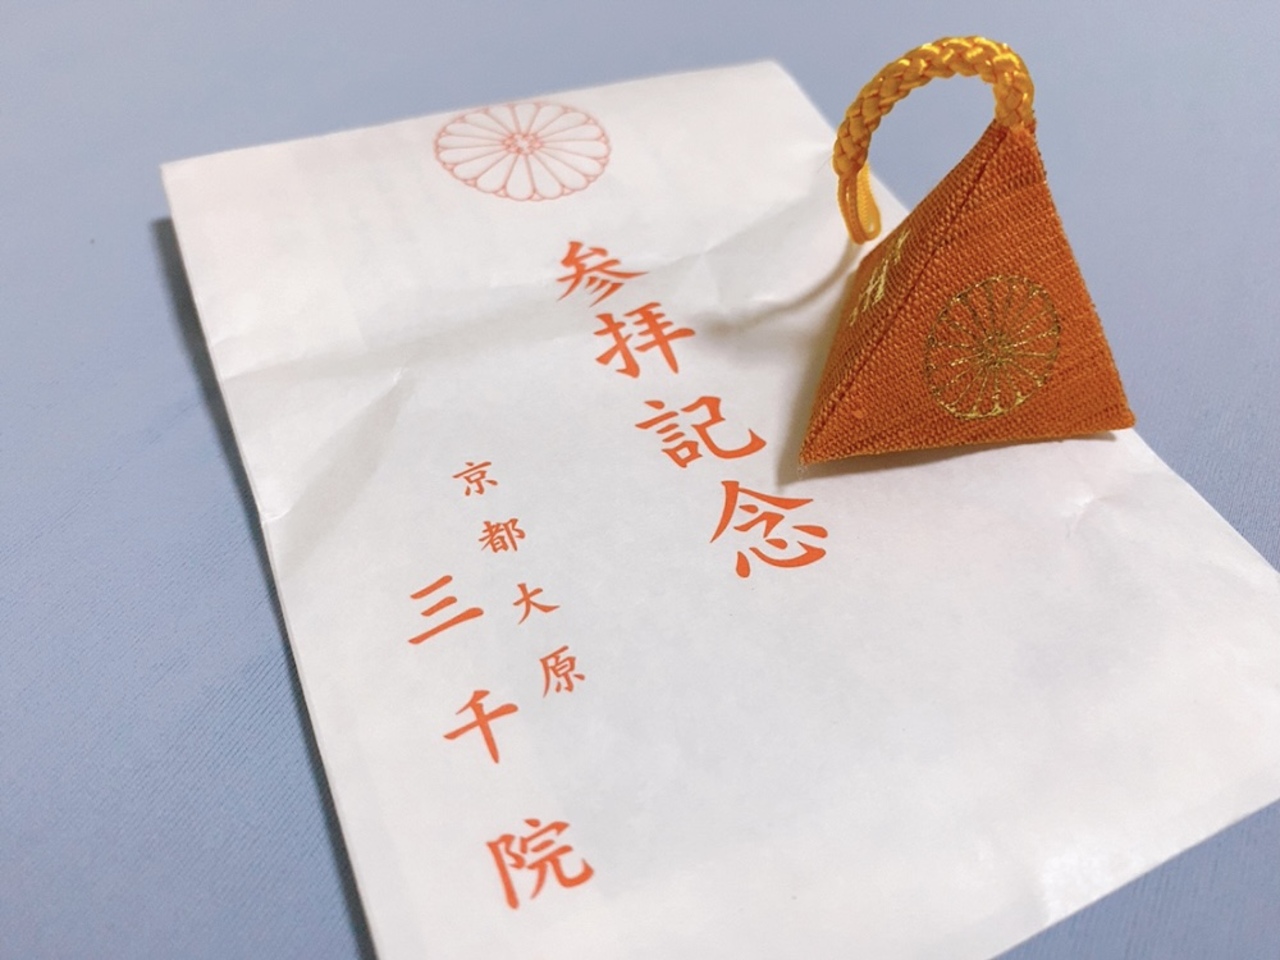 参拝記念
京都大原
三千院